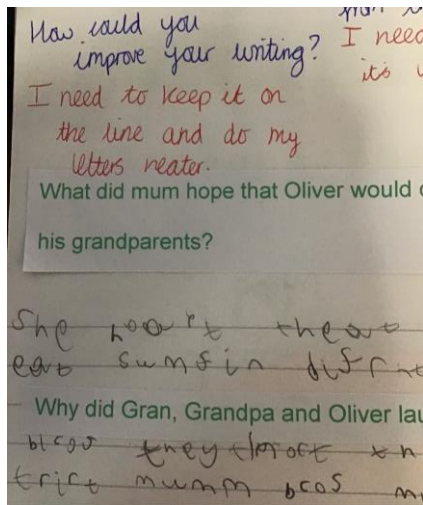 How could you
improve your writing?
I need
it's
I need to keep it on
the line and do my
letters neater.
What did mum hope that Oliver would
his grandparents?
She hoart theat
eat sumfin difrnt
Why did Gran, Grandpa and Oliver lau
they
trict mumm bcos